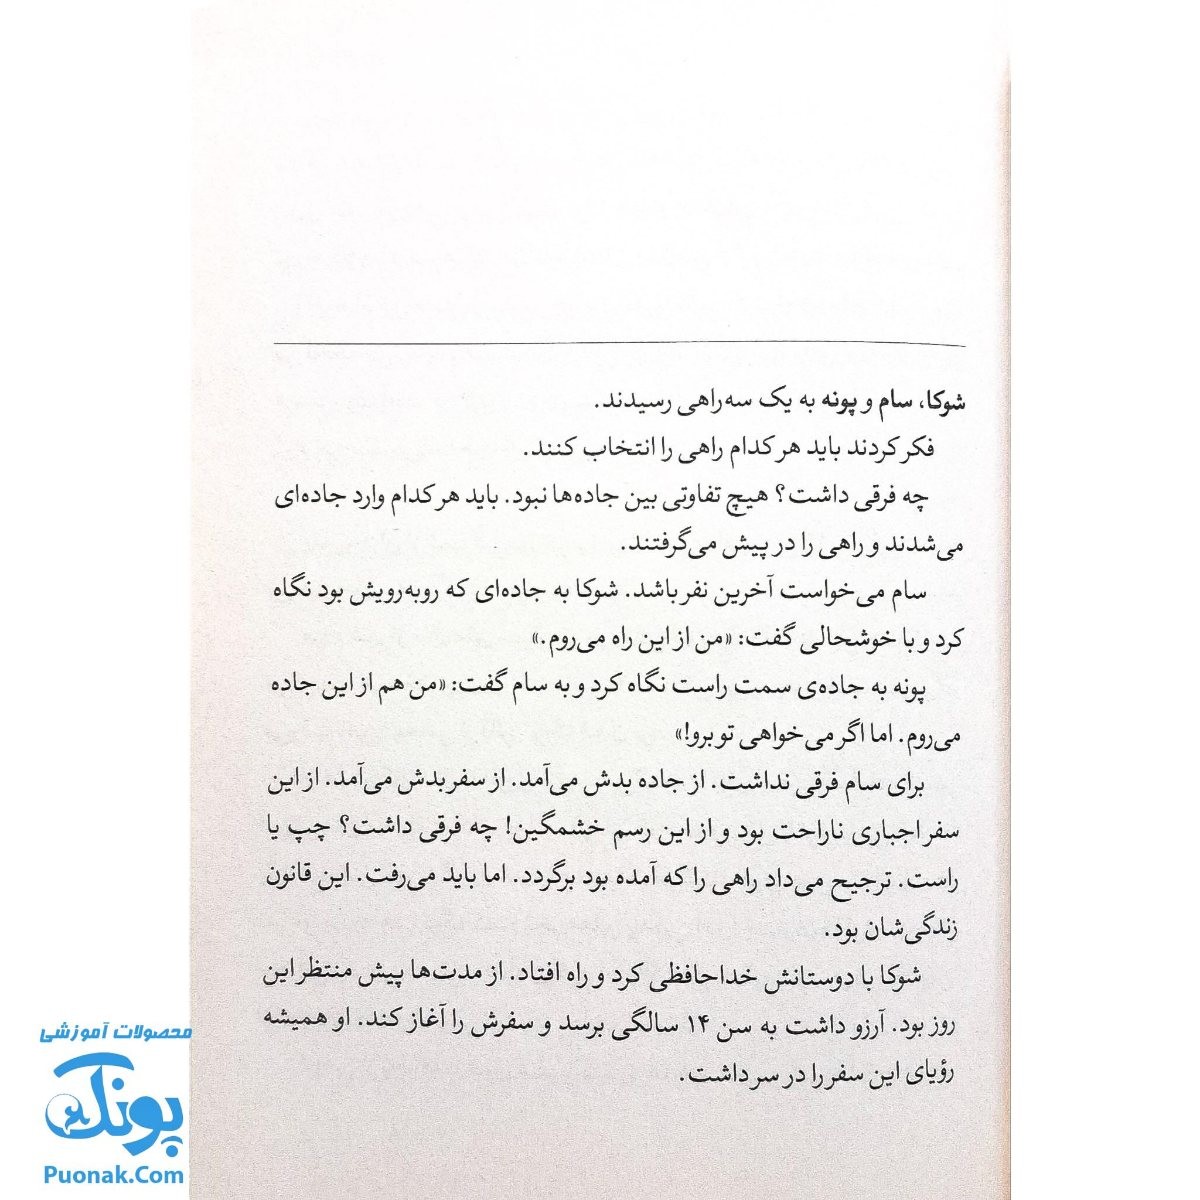 شوکا، سام و پونه به یک سه‌راهی رسیدند.
فکر کردند باید هر کدام راهی را انتخاب کنند.
چه فرقی داشت؟ هیچ تفاوتی بین جاده‌ها نبود. باید هر کدام وارد جاده‌ای
می‌شدند و راهی را در پیش می‌گرفتند.
سام می‌خواست آخرین نفر باشد. شوکا به جاده‌ای که روبه‌رویش بود نگاه
کرد و با خوشحالی گفت: «من از این راه می‌روم.»
پونه به جاده‌ی سمت راست نگاه کرد و به سام گفت: «من هم از این جاده
می‌روم. اما اگر می‌خواهی تو برو!»
برای سام فرقی نداشت. از جاده بدش می‌آمد. از سفر بدش می‌آمد. از این
سفر اجباری ناراحت بود و از این رسم خشمگین! چه فرقی داشت؟ چپ یا
راست. ترجیح می‌داد راهی را که آمده بود برگردد. اما باید می‌رفت. این قانون
زندگی‌شان بود.
شوکا با دوستانش خداحافظی کرد و راه افتاد. از مدت‌ها پیش منتظر این
روز بود. آرزو داشت به سن ۱۴ سالگی برسد و سفرش را آغاز کند. او همیشه
رؤیای این سفر را در سر داشت.
محصولات آموزشی
پونک
Puonak.Com